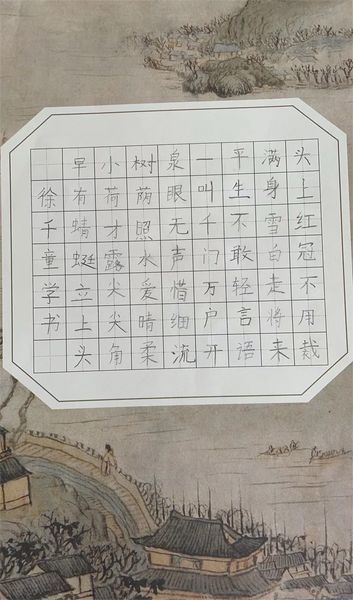 头上红冠不用裁
满身雪白走将来
平生不敢轻言语
一叫千门万户开
泉眼无声惜细流
树荫照水爱晴柔
小荷才露尖尖角
早有蜻蜓立上头
徐千童学书